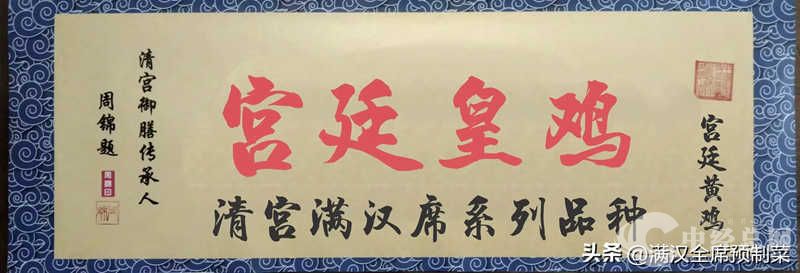 宫廷皇鸡
清宫满汉席系列品种
清宫御膳传承人
周锦题
宫廷黄鸡
头条 @满汉全席预制菜